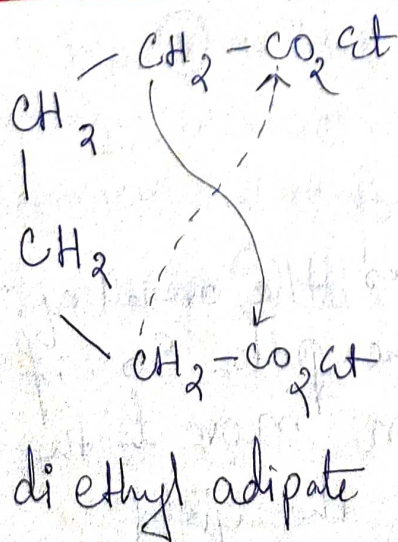 CH₂ – CO₂Et
CH₂
CH₂
CH₂ – CO₂Et
di ethyl adipate